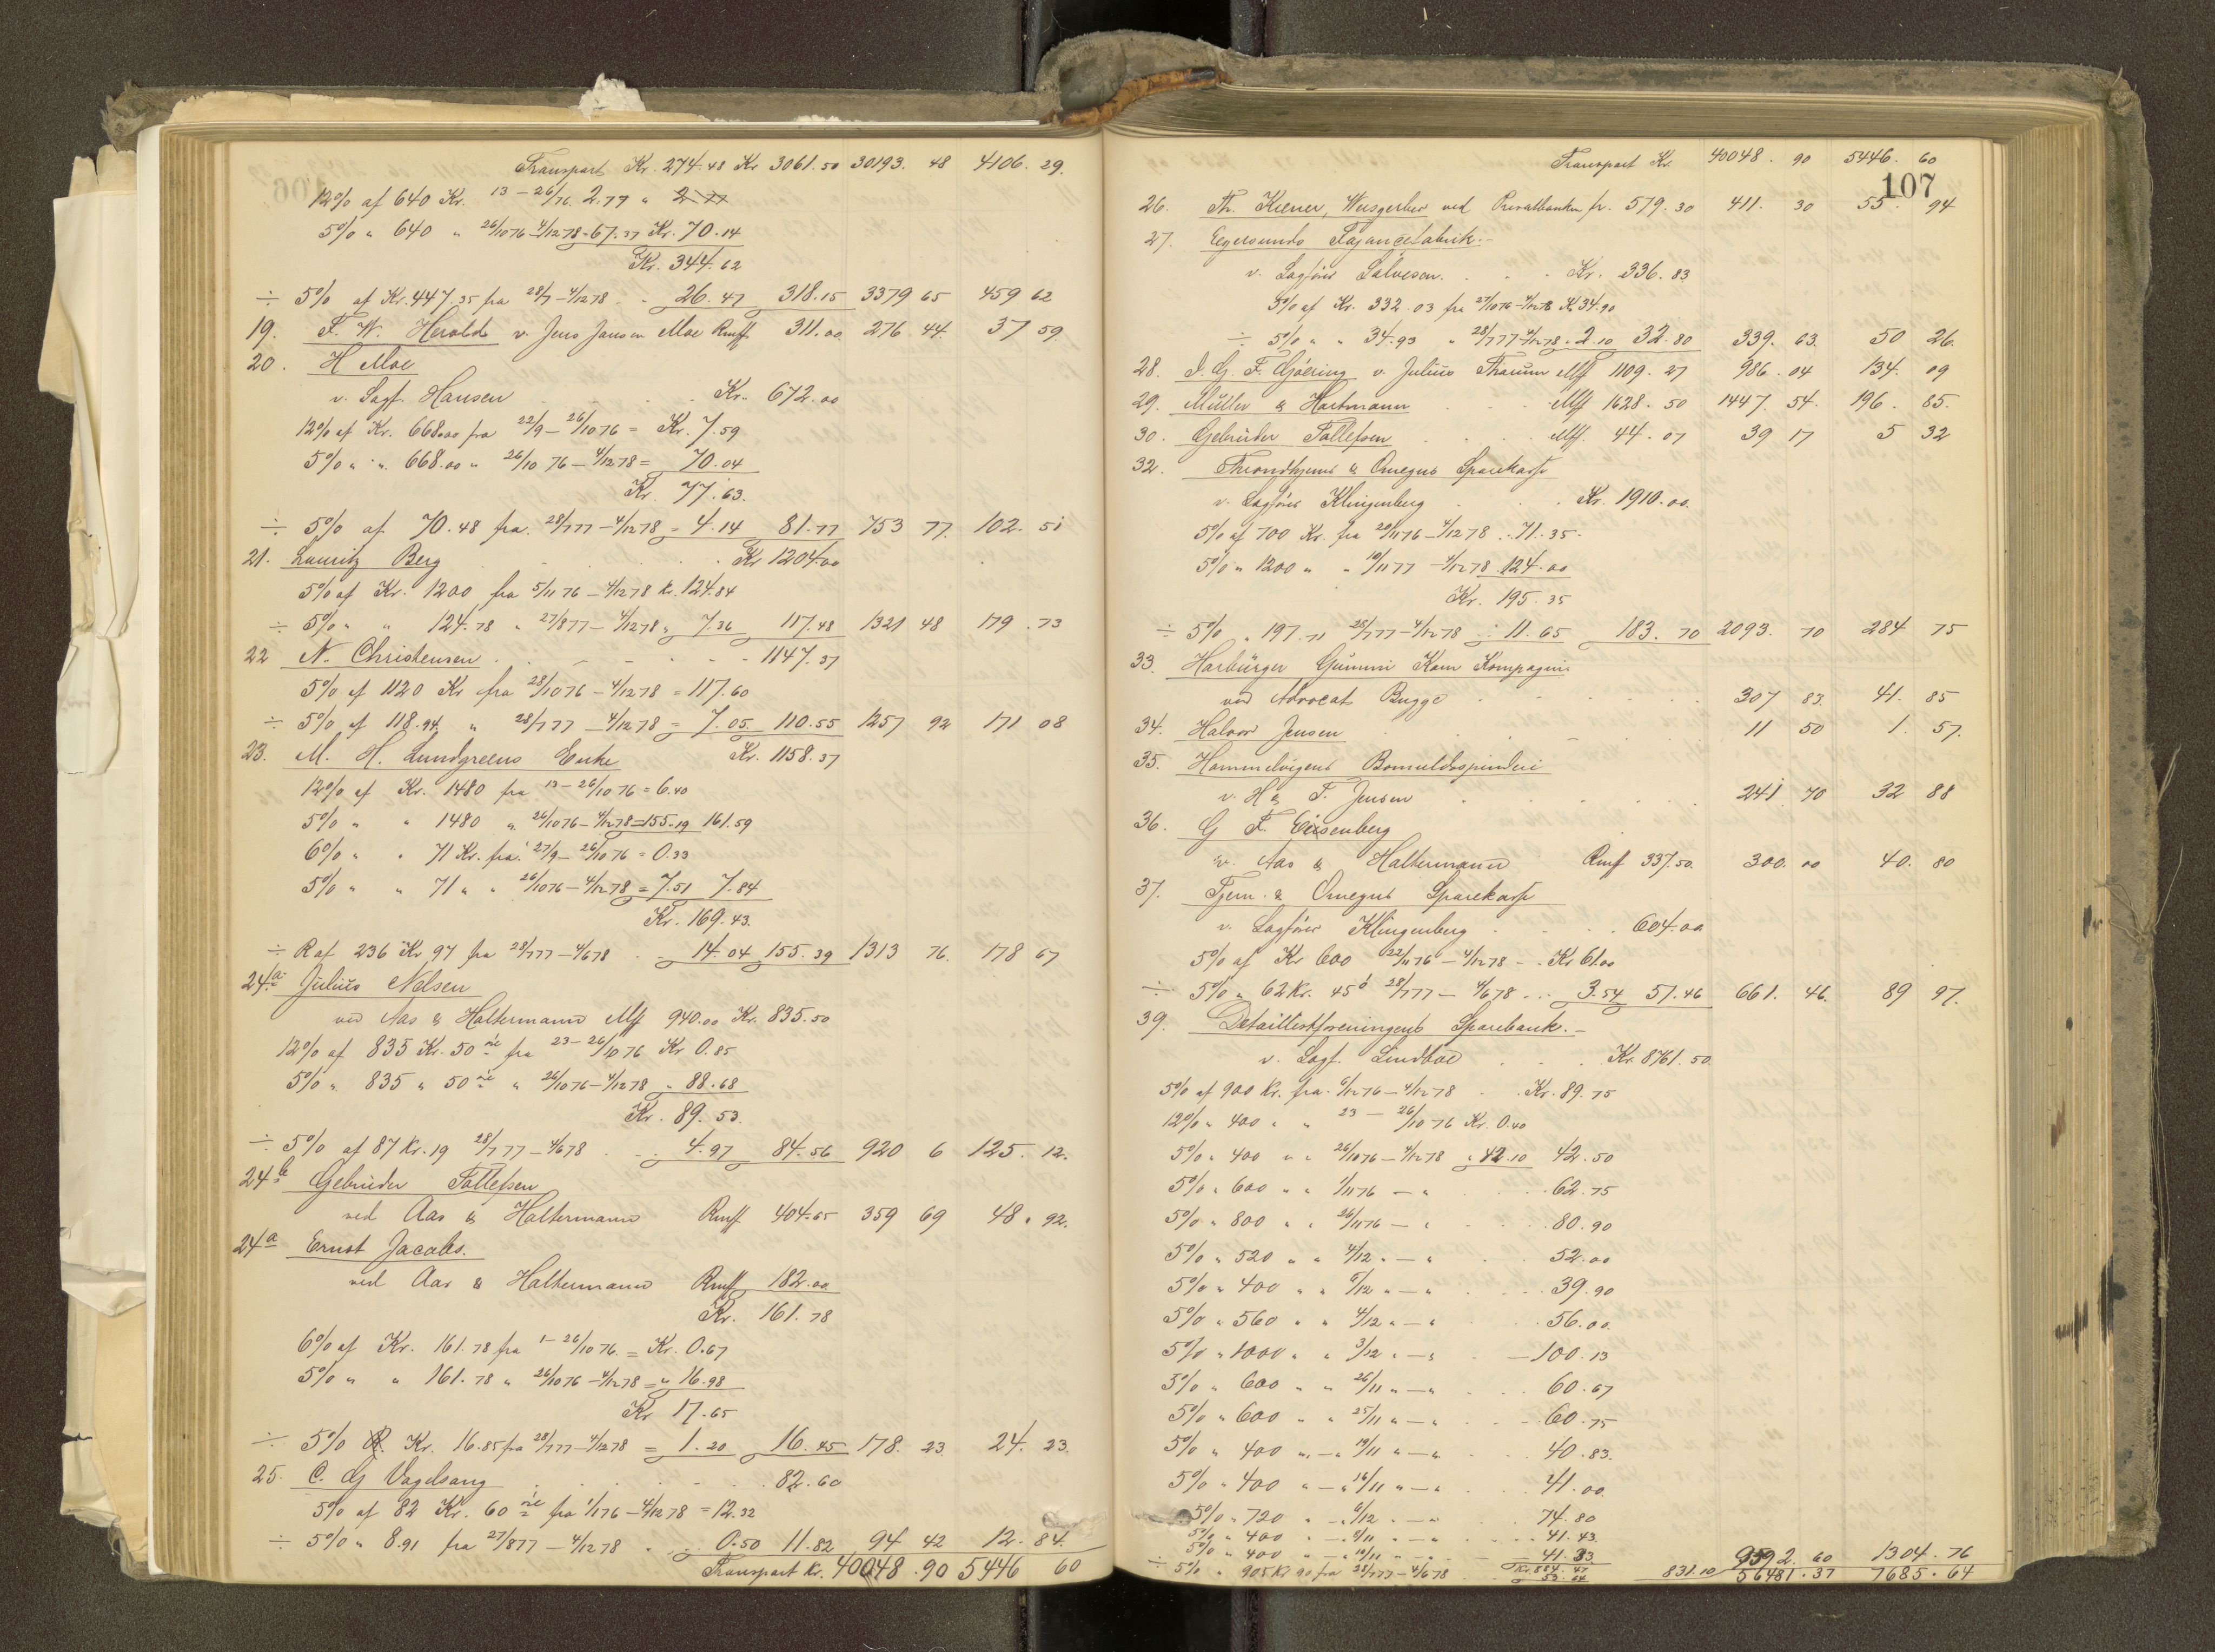 Transport Kr. 274.48 Kr 3061.50 30193. 48 4106. 29.
12% af 640 Kr. 13-26/76. 2.77 " 2.77
5% " 640 " 26/10 76-4/12 78 = 67.37 Kr. 70.14
Kr. 344.62
÷ 5% af Kr. 447.35 fra 28/7-4/12 78 . . 26.47 318.15 3379 65 459 62
19. F. W. Herold v. Jens Jansen Moe Rmf 311.00 276. 44. 37 59
20. H Moe
v. Sagf. Hansen . . . Kr. 672.00
12% af Kr. 668.00 fra 22/9-26/10 76 = Kr. 7.59
5% " " 668.00 " 26/10 76-4/12 78 = 70.04
Kr. 77.63.
÷ 5% af 70.48 fra 28/7 77-4/12 78 = 4.14 81.77 753 77. 102. 51
21. Lauritz Berg . . . Kr 1204.00
5% af Kr. 1200 fra 5/11 76-4/12 78 k. 124.84
÷ 5% " " 124.78 " 27/8 77-4/12 78 " 7.36 117.48 1321 48 179.73
22 N. Christensen . . . 1147.37
5% af 1120 Kr fra 28/10 76-4/12 78 = 117.60
÷ 5% af 118.94. " 28/7 77-4/12 78 = 7.05 110.55 1257 92 171 08
23. M. H. Lundgreens Enke Kr. 1158.37
12% af Kr. 1480 fra 13-26/10 76 = 6.40
5% " " 1480 " 26/10 76-4/12 78 = 155.19 161.59
6% " " 71 Kr. fra 27/9-26/10 76 = 0.33
5% " " 71 " " 26/10 76-4/12 78 = 7.51 7.84
Kr. 169.43.
÷ R af 236 Kr 97 fra 28/7 77-4/6 78 . . 14.04 155.39 1313 76. 178 67
24a Julius Nelsen
ved Aas & Haltermann Mf 940.00 Kr. 835.50
12% af 835 Kr. 50 øre fra 23-26/10 76 Kr 0.85
5% " 835 " 50 øre " 26/10 76-4/12 78 " 88.68
Kr. 89.53.
÷ 5% af 87 Kr. 19 28/7 77-4/6 78 . . 4.97 84.56 920 6 125. 12.
24b Gebrüder Tollefsen
ved Aas & Haltermann Rmf 404.65 359 69 48. 92.
24a Ernst Jacobs.
ved Aas & Haltermann Rmf 182.00
Kr. 161.78
6% af Kr. 161.78 fra 1-26/10 76. = Kr. 0.67
5% " " 161.78 " 26/10 76-4/12 78 = " 16.98
Kr 17.65
÷ 5% Kr. 16.85 fra 28/7 77-4/12 78 = 1.20 16.45 178. 23. 24. 23.
25. C. G Vogelsang . . . 82.60
5% af 82 Kr. 60 øre fra 1/1 76-4/12 78 = 12.32
÷ 5% " 8.91 fra 27/8 77-4/12 78 . . 0.50 11.82 94 42 12. 84.
Transport Kr. 40048.90 5446 60
Transport Kr 40048. 90 5446. 60
107
26. Th. Kiener, Weisgerber ved Privatbanken fr. 579.30 411. 30 55. 94
27. Egersunds Fajancefabrik.-
v. Sagfører Salvesen . . . Kr. 336.83
5% af Kr. 332.03 fra 27/10 76-4/12 78 Kr 34.90
÷ 5% " " 34.93 " 28/7 77-4/12 78 " 2.10 32.80 339. 63. 50 26.
28. I. G. F. Gøering v. Julius Tharum Mf 1109.27 986.04 134. 09
29. Müller & Hartmann . . . Mf 1628.50 1447. 54. 196. 85.
30. Gebrüder Tollefsen . . . Mf. 44.07 39 17 5 32
32. Throndhjems & Omegns Sparekasse
v. Sagfører Klingenberg . . . Kr. 1910.00.
5% af 700 Kr. fra 20/11 76-4/12 78 . . 71.35.
5% " 1200 " " 10/11 77 -4/12 78 124.00
Kr. 195.35
÷ 5% " 197.71 28/7 77-4/12 78 ÷ 11.65 183.70 2093. 70 284 75
33. Harbürger Gummi Kam Kompagni
ved Advocat Bugge . . . 307 83. 41. 85
34. Halvor Jensen . . . 11 50 1. 57.
35. Hommelvigens Bomuldsspinderi
v. H & F. Jensen . . . 241 70 32 88
36. G F. Eisenberg
v. Aas & Haltermann Rmf 337.50. 300. 00 40. 80
37. Tjem. & Omegns Sparekasse
v. Sagfører Klingenberg . . . 604.00
5% af Kr 600 22/11 76-4/12 78 - . Kr 61.00
÷ 5% " 62 Kr. 45 ø 28/7 77-4/6 78 . . . 3.54 57.46 661. 46. 89 97.
39. Detaillistforeningens Sparebank.-
v. Sagf. Lindboe . . . Kr. 8761.50.
5% af 900 Kr. fra 6/12 76-4/12 78 . . Kr. 89.75
12% " 400 " " 23-26/10 76 Kr. 0.40
5% " 400 " " 26/10 76-4/12 78 " 42.10 42.50
5% " 600 " " 1/11 76 - " . . . 62.75
5% " 800 " " 26/11 76 - " . . . 80.90
5% " 520 " " 4/12 " - " . . . 52.00
5% " 400 " " 5/12 " - " . . . 39.90
5% " 560 " " 4/12 " - " . . . 56.00.
5% " 1000 " " 3/12 " - " . - 100.13
5% " 600 " " 26/11 " - " . . . 60.67
5% " 600 " " 25/11 " - " . . . 60.75
5% " 400 " - " 19/11 " - " . . . 40.83.
5% " 400 " - " 16/11 " - " . . . 41.00.
5% " 720 " - " 6/12 " - " . . . 74.80
5% " 400 " - " 8/11 " - " . . . 41.43.
5% " 400 " - " 10/11 " - " - 41.33.
Kr. 884.47
÷ 5% " 905 Kr 90 fra 28/7 77-4/6 78 53.64 831.10 9592.60 1304.76
56481.37 7685.64